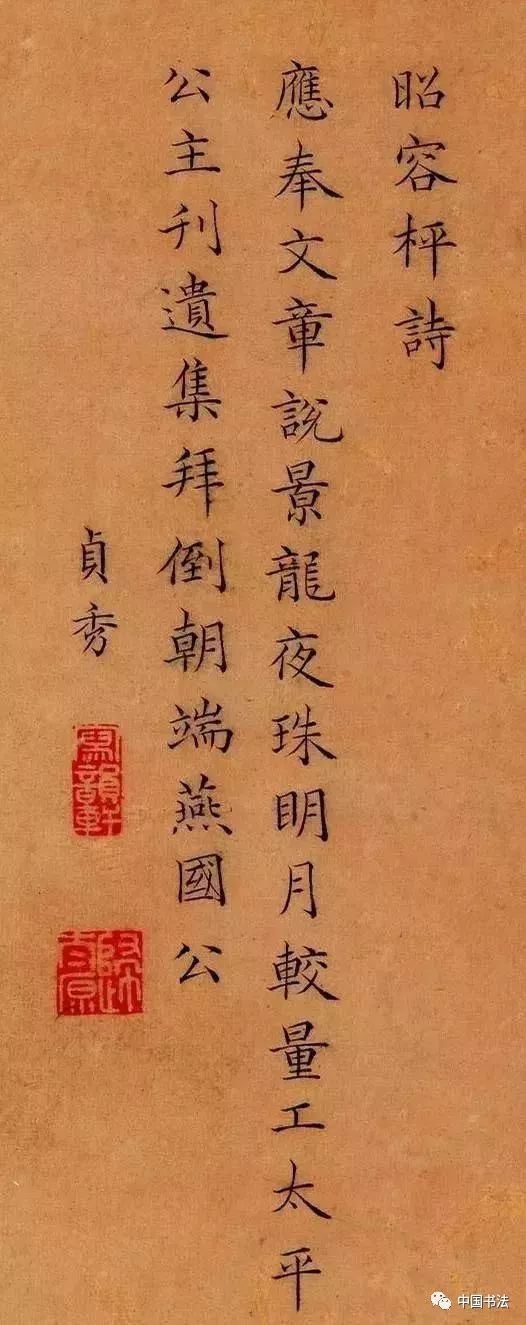 昭容枰詩
應奉文章說景龍夜珠明月較量工太平
公主刋遺集拜倒朝端燕國公
貞秀
寫韻軒
中国书法